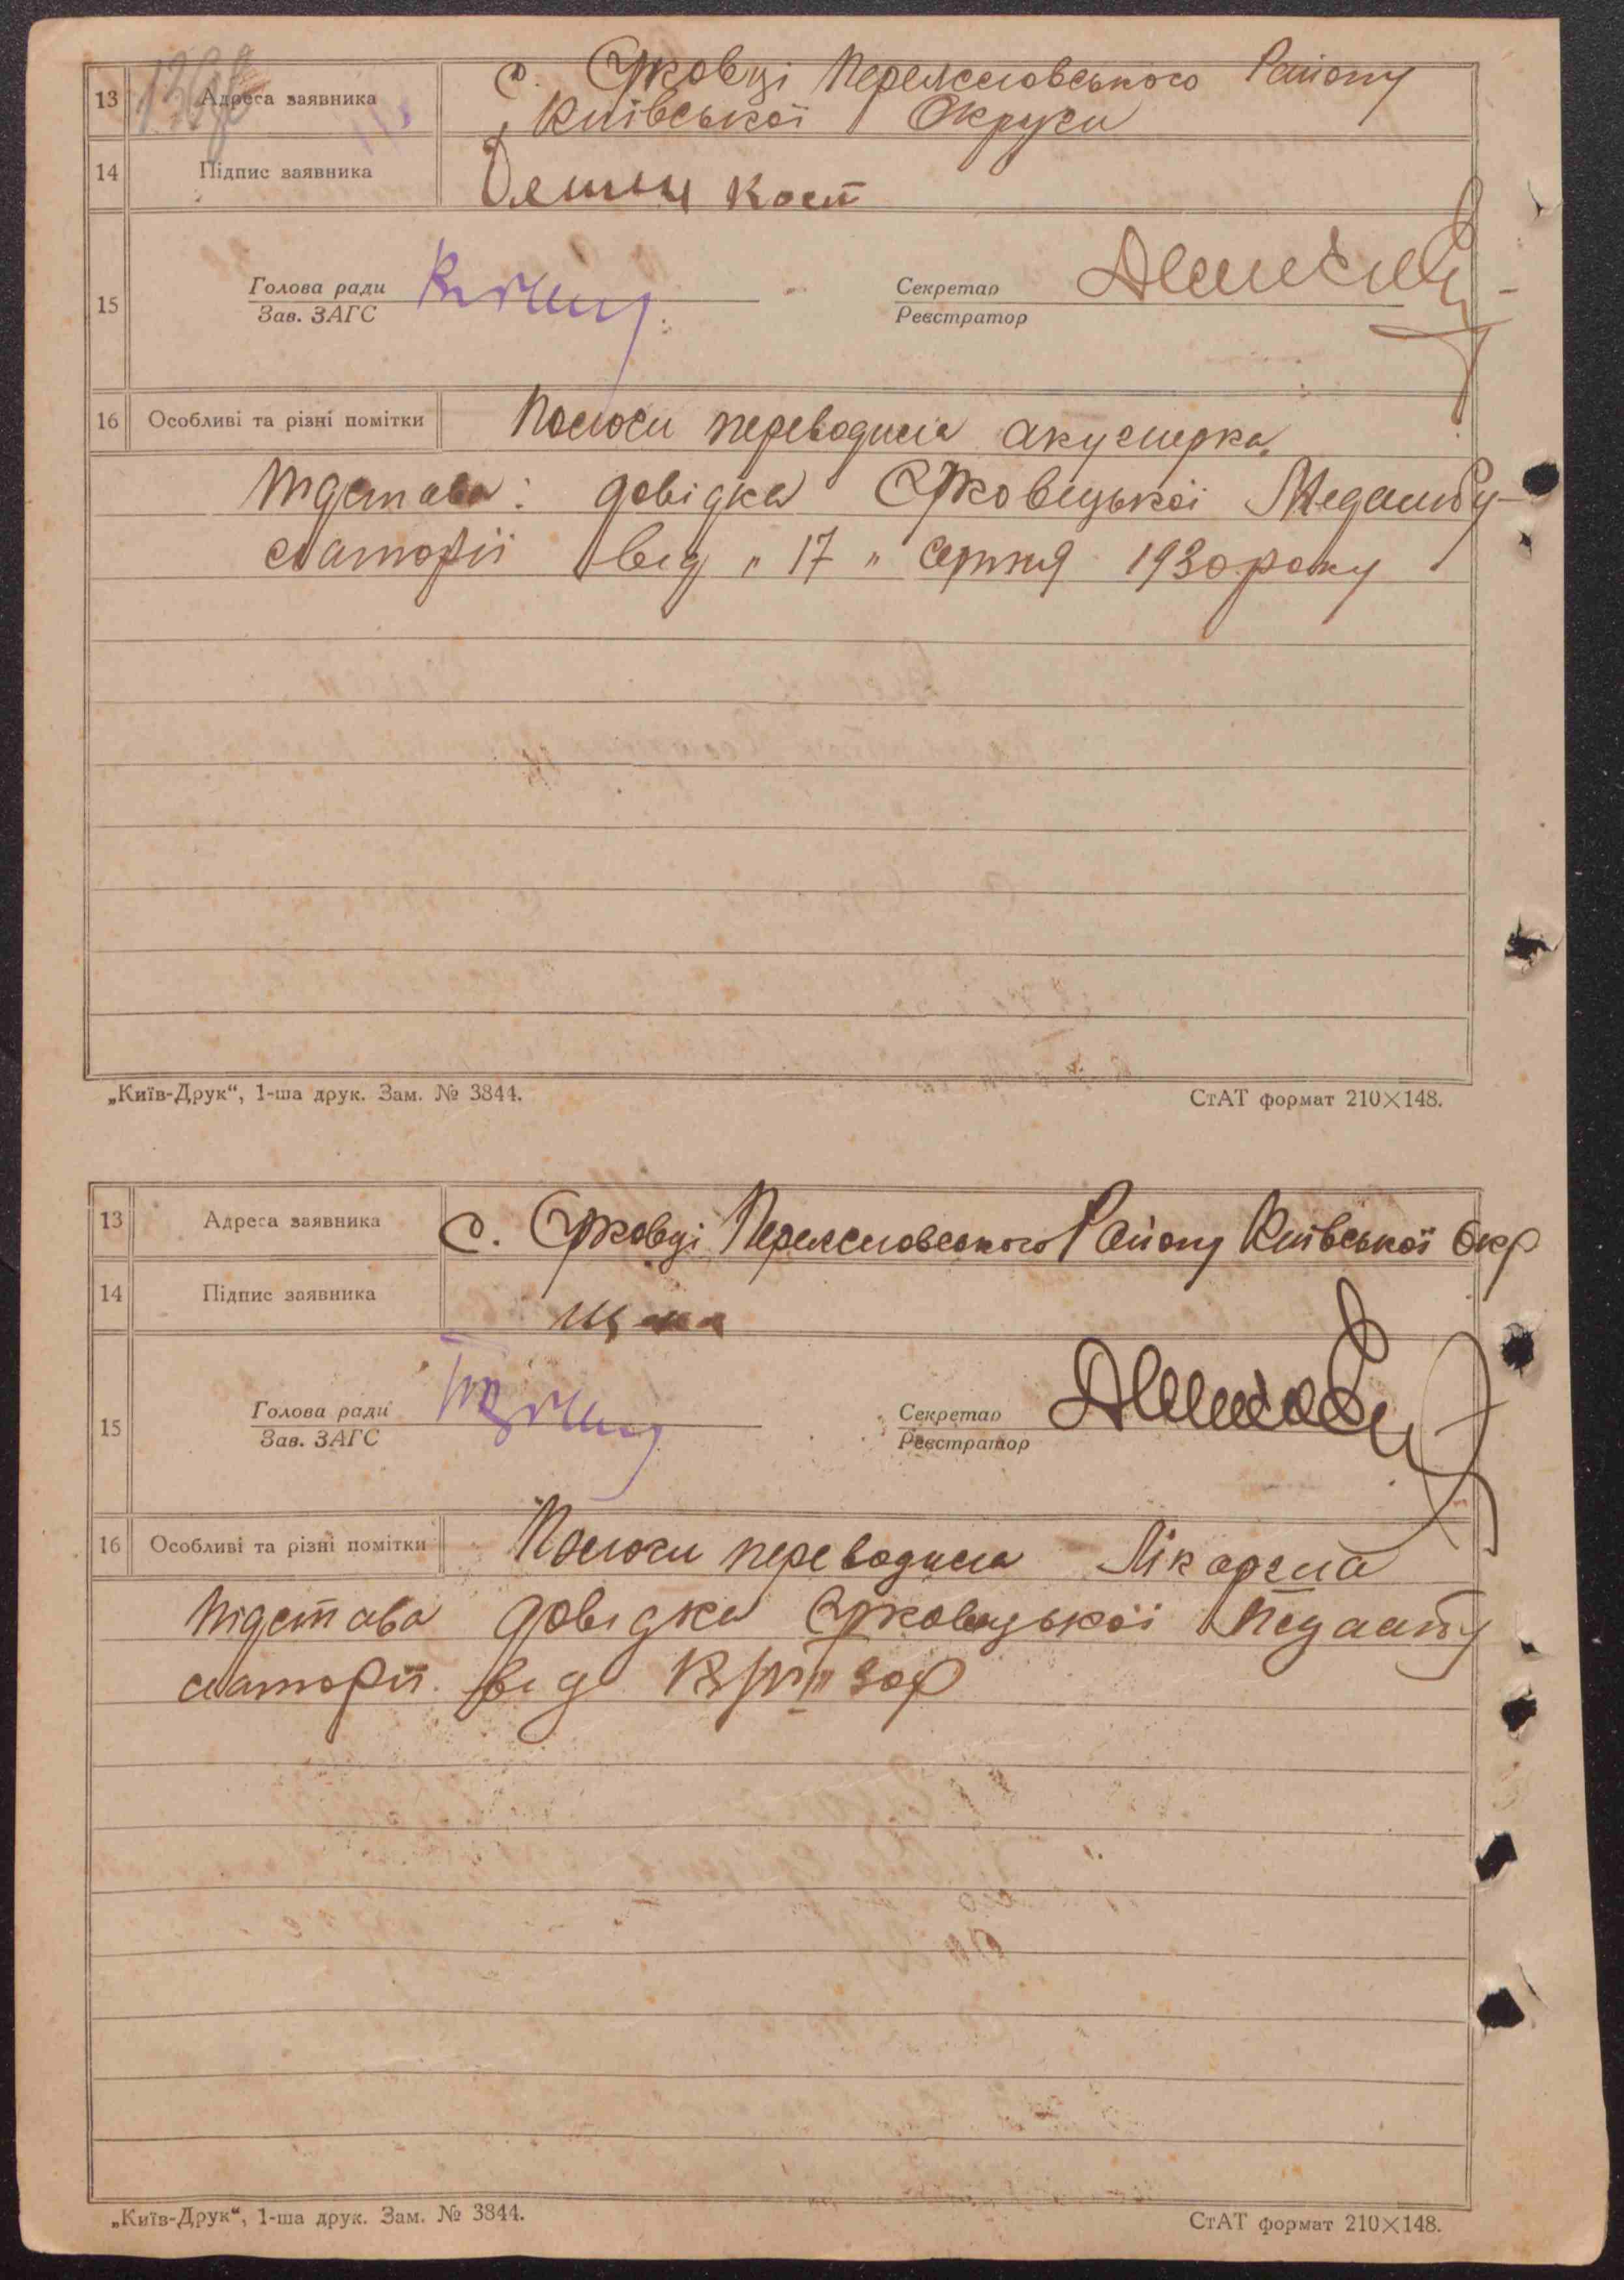 13 Адреса заявника с. Єрковці Переяславського Району
Київської Округи
14 Підпис заявника
15 Голова ради Секретар
Зав. ЗАГС Реєстратор
16 Особливі та різні помітки Пологи переводила акушерка.
Підстава: довідка Єрковецької Медамбу-
латорії від „ 17 „ серпня 1930 року
„Київ-Друк“, 1-ша друк. Зам. № 3844. СтАТ формат 210×148.
13 Адреса заявника с. Єрковці Переяславського Району Київської Окр
14 Підпис заявника
15 Голова ради Секретар
Зав. ЗАГС Реєстратор
16 Особливі та різні помітки Пологи переводила
Підстава довідка Єрковецької
латорії від 30р
„Київ-Друк“, 1-ша друк. Зам. № 3844. СтАТ формат 210×148.